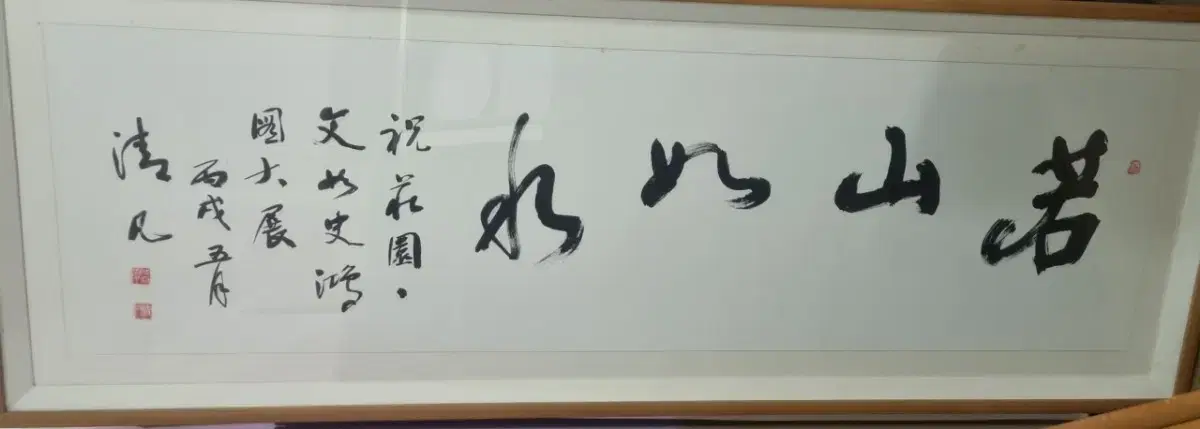 若山如水
祝莊園、
文如史鴻
圖大展
丙戌五月
清凡